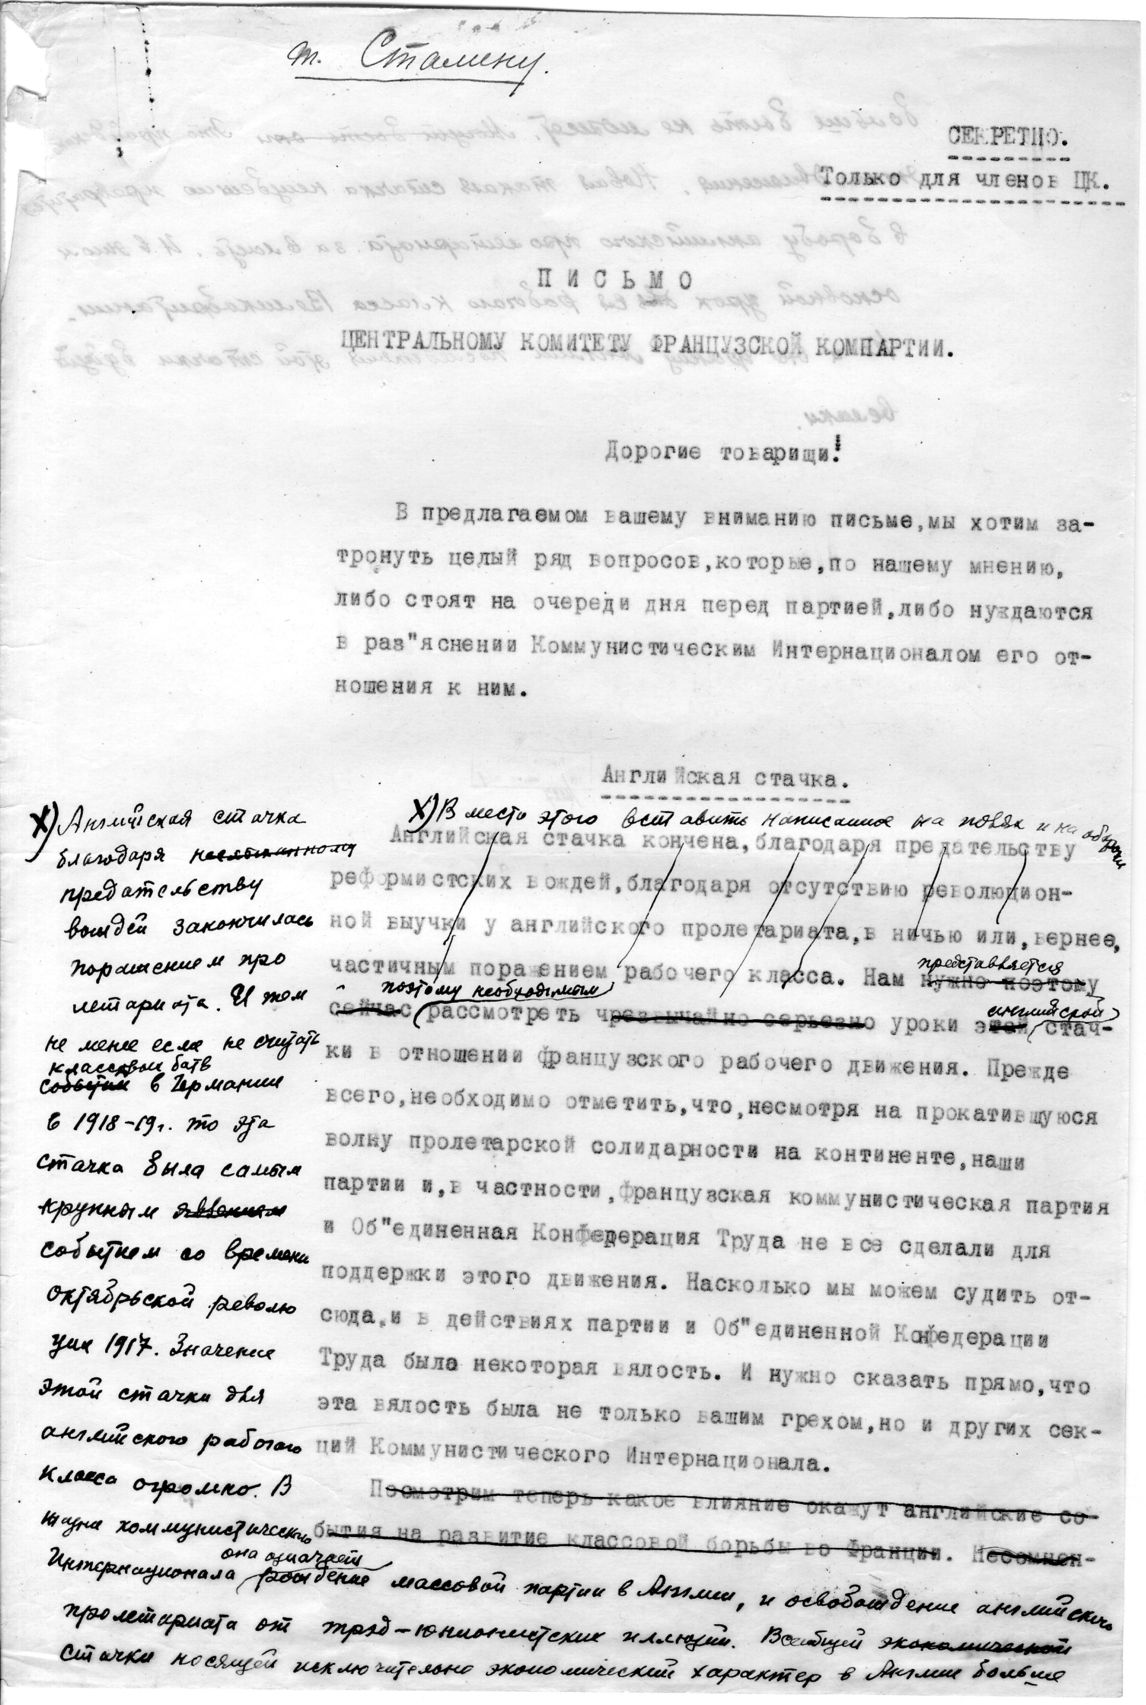 т. Сталину.
СЕКРЕТНО.
Только для членов ЦК.
ПИСЬМО
ЦЕНТРАЛЬНОМУ КОМИТЕТУ ФРАНЦУЗСКОЙ КОМПАРТИИ.
Дорогие товарищи!
В предлагаемом вашему вниманию письме,мы хотим за-
тронуть целый ряд вопросов,которые,по нашему мнению,
либо стоят на очереди дня перед партией,либо нуждаются
в раз"яснении Коммунистическим Интернационалом его от-
ношения к ним.
Английская стачка.
х) Вместо этого вставить написанное на полях и на обороте
Английская стачка кончена,благодаря предательству
реформистских вождей,благодаря отсутствию революцион-
ной выучки у английского пролетариата,в ничью или,вернее,
частичным поражением рабочего класса. Нам нужно поэтому
представляется
поэтому необходимым
сейчас рассмотреть чрезвычайно серьезно уроки этой стач-
английской
ки в отношении французского рабочего движения. Прежде
всего,необходимо отметить,что,несмотря на прокатившуюся
волну пролетарской солидарности на континенте,наши
партии и,в частности,французская коммунистическая партия
и Об"единенная Конфедерация Труда не все сделали для
поддержки этого движения. Насколько мы можем судить от-
сюда,и в действиях партии и Об"единенной Конфедерации
Труда была некоторая вялость. И нужно сказать прямо,что
эта вялость была не только вашим грехом,но и других сек-
ций Коммунистического Интернационала.
Посмотрим теперь какое влияние окажут английские со-
бытия на развитие классовой борьбы во Франции. Несомнен-
х) Английская стачка
благодаря неслыханному
предательству
вождей закончилась
поражением про
летариата. И тем
не менее если не считать
классовых битв
событий в Германии
в 1918-19г. то эта
стачка была самым
крупным явлением
событием со времени
октябрьской револю
ции 1917. Значение
этой стачки для
английского рабочего
класса огромно. В
коммунистического
Интернационала она означает рождение массовой партии в Англии, и освобождение английского
пролетариата от трэд-юнионистских иллюзий. Всеобщей экономической
стачки носящей исключительно экономический характер в Англии больше